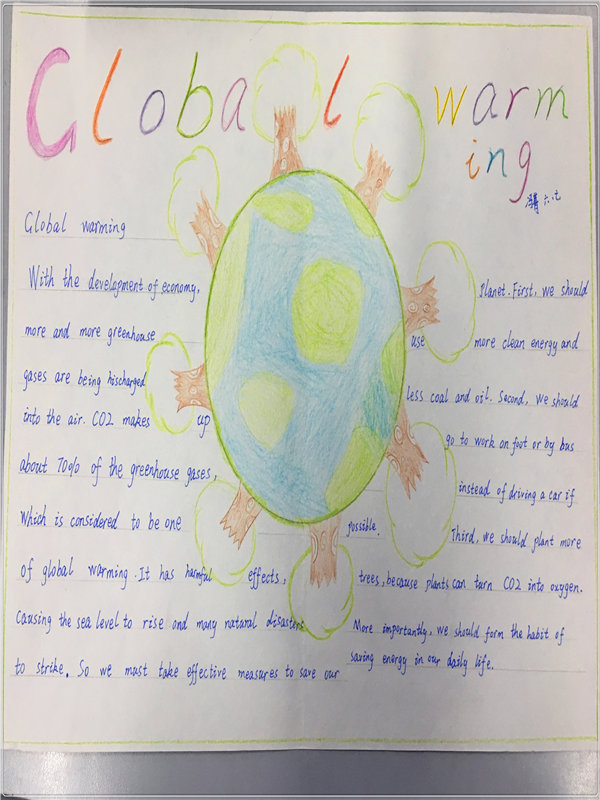 Global warming
Global warming
With the development of economy,
more and more greenhouse
gases are being hischarged
into the air. CO2 makes up
about 70% of the greenhouse gases,
which is considered to be one
of global warming. It has harmful effects,
causing the sea level to rise ond many natural disasters
to strike. So we must take effective measures to save our
Planet. First, we should
use more clean energy and
less coal and oil. Second, we should
go to work on foot or by bus
instead of driving a car if
possible. Third, we should plant more
trees, because plants can turn CO2 into oxygen.
More importantly, we should form the habit of
saving energy in our daily life.